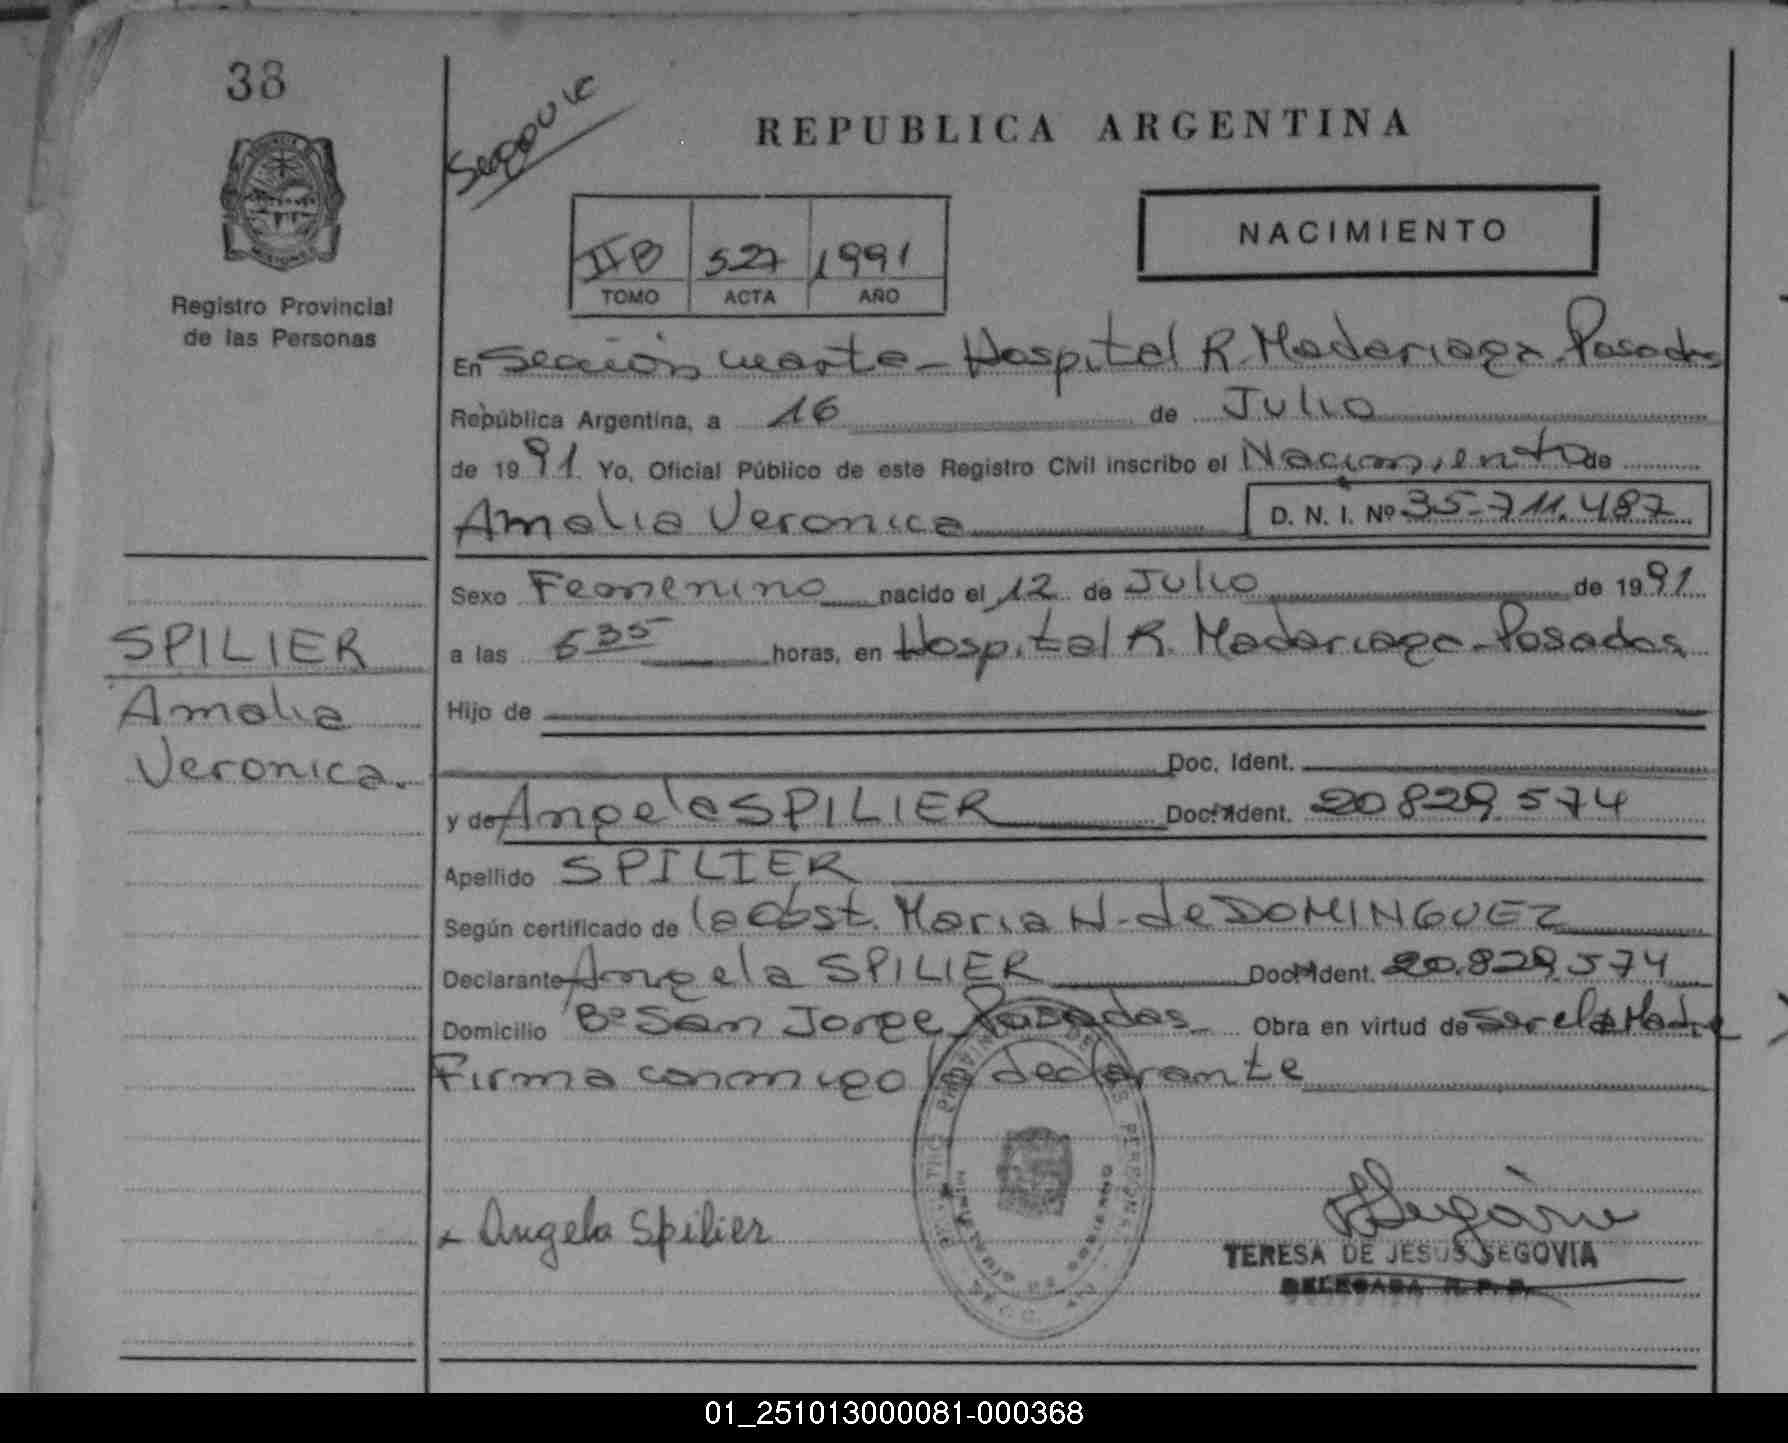 38
Registro Provincial
de las Personas
SPILIER
Amalia
Veronica.
REPUBLICA ARGENTINA
NACIMIENTO
IIB 527 1991
TOMO ACTA AÑO
En Sección cuarta - Hospital R. Madariaga - Posadas
República Argentina, a 16 de Julio
de 1991. Yo, Oficial Público de este Registro Civil inscribo el Nacimiento de
Amalia Veronica D. N. I. Nº 35.711.487
Sexo Femenino nacido el 12 de Julio de 1991.
a las 535 horas, en Hospital R. Madariaga - Posadas
Hijo de
Doc. Ident.
y de Angela SPILIER Doc. Ident. 20 829 574
Apellido SPILIER
Según certificado de la Obst. Maria N. de DOMINGUEZ
Declarante Angela SPILIER Doc. Ident. 20.829.574
Domicilio Bº San Jorge Posadas Obra en virtud de Ser el la Madre
Firma conmigo la declarante
Angela Spilier
TERESA DE JESUS SEGOVIA
DELEGADA R. P. P.
01_251013000081-000368